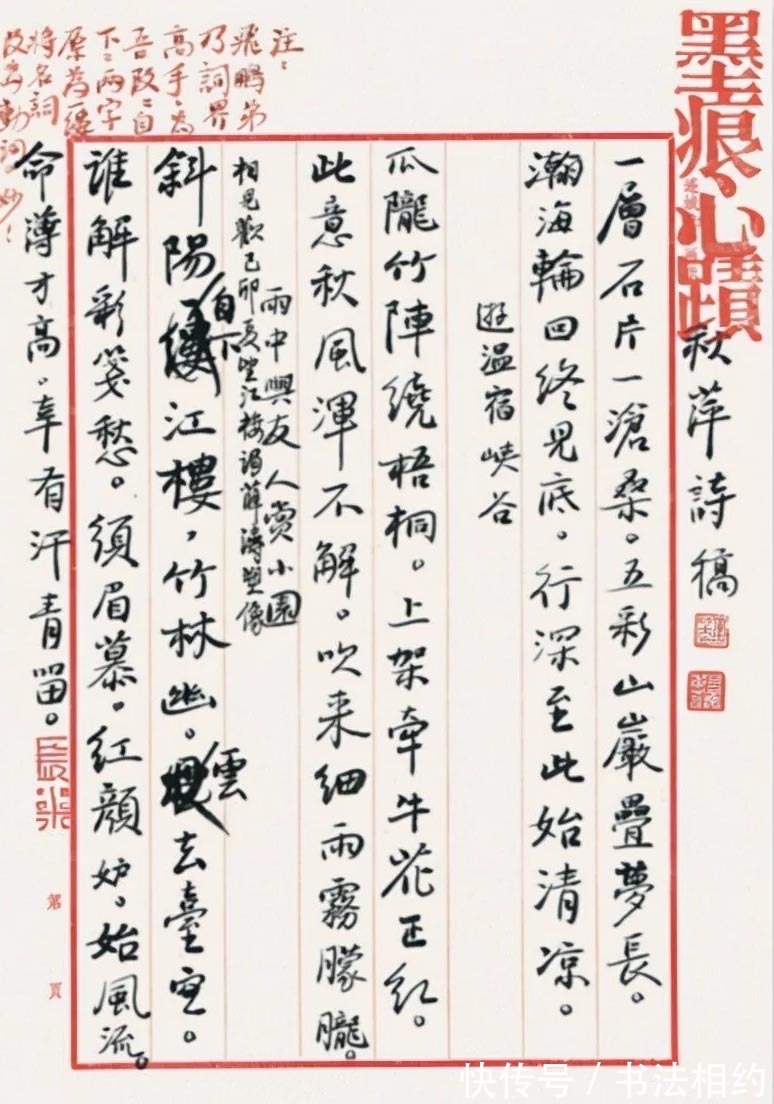 墨痕心蹟
秋萍詩稿
一層石片一滄桑。五彩山巖疊夢長。
瀚海輪回終見底。行深至此始清凉。
遊温宿峡谷
瓜隴竹陣繞梧桐。上架牽牛花正红。
此意秋風渾不解。吹来细雨霧朦朧。
雨中與友人赏小園
相見歡己卯夏望江楼谒薛濤塑像
斜陽自下江樓，竹林幽。雲去臺空。
谁解彩箋愁。须眉慕。红顔妒。始風流。
命薄才高。幸有汗青留。
注：
飛鵬弟
乃詞界
高手，为
吾改：自
下：两字
原为一缕
将名詞
改为動詞妙！
第 頁
快传号 / 书法相约